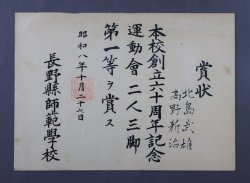 賞状
北島武雄
高野新治
本校創立六十周年記念
運動會二人三脚
第一等ヲ賞ス
昭和八年十月二十七日
長野縣師範學校